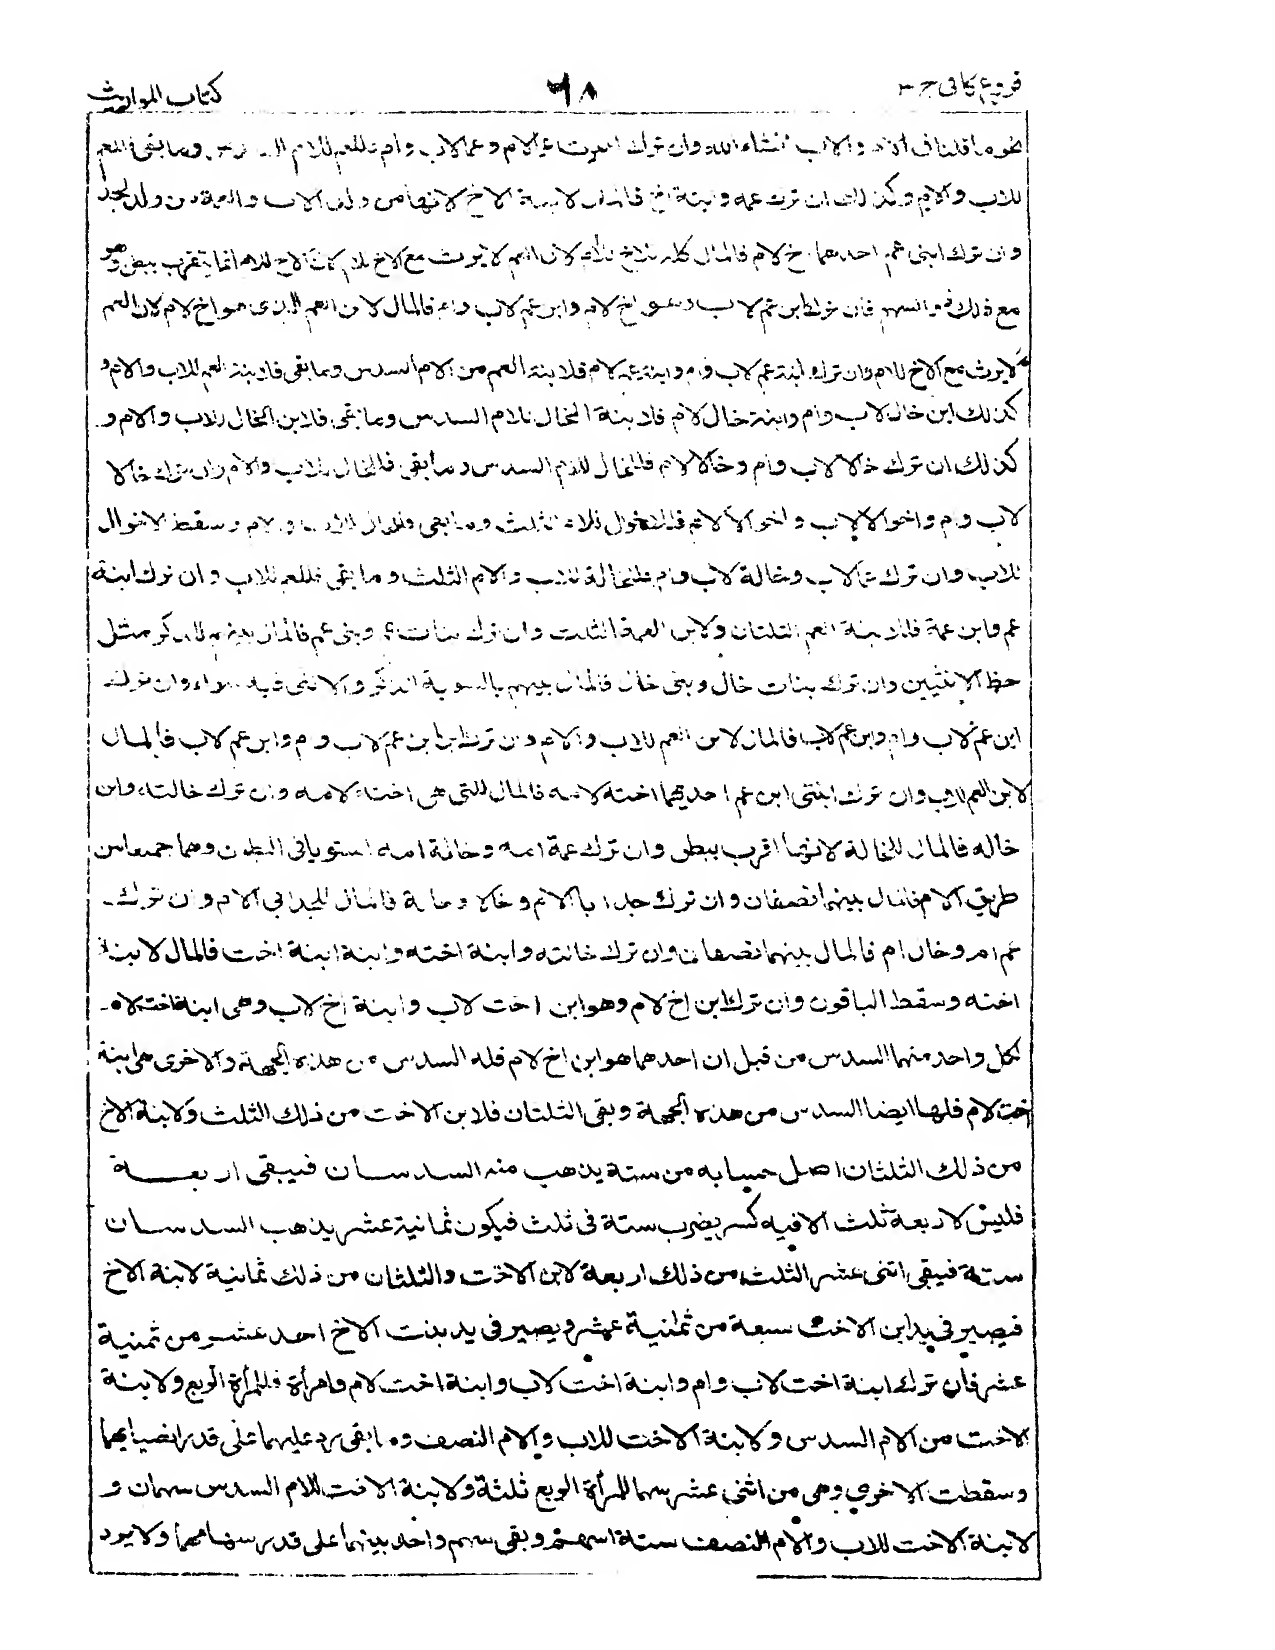 فروع كافى ج ٣ ٦٨ كتاب المواريث
نحو ما قلنا فى و الاب انشاء الله وان ترك للام و عما لاب وام للام وما بقى للعم
للاب والام وكذلك ان ترك عمه وابنة اخ فالمال لابنة الاخ لانها من ولد الاب والعمة من ولد الجد
وان ترك ابنى عم احدهما اخ لام فالمال كله للاخ للام لان العم لا يرث مع الاخ للام لان الاخ للام انما يتقرب ببطن وهو
مع ذلك ذو السهم فان ترك ابن عم لاب وهو اخ لام وابن عم لاب وام فالمال لابن العم الذى هو اخ لام لان العم
لا يرث مع الاخ للام وان ترك ابنة عم لاب وام وابنة عم لام فلابنة العم من الام السدس وما بقى فلابنة العم للاب والام و
كذلك ابن خال لاب وام وابنة خال لام فلابنة الخال للام السدس وما بقى فلابن الخال للاب والام و
كذلك ان ترك خالا لاب وام وخالا لام فللخال للام السدس وما بقى فللخال للاب والام وان ترك خالا
لاب وام واخوالا لاب واخوالا لام فللاخوال للام الثلث وما بقى فللخال للاب والام وسقط الاخوال
للاب وان ترك عما لاب وخالة لاب وام فللخالة للاب والام الثلث وما بقى فللعم للاب وان ترك ابنة
عم وابن عمة فلابنة العم الثلثان ولابن العمة الثلث وان ترك بنات عم وبنى عم فالمال بينهم للذكر مثل
حظ الانثيين وان ترك بنات خال وبنى خال فالمال بينهم بالسوية الذكر والانثى فيه سواء وان ترك
ابن عم لاب وام وابن عم لاب فالمال لابن العم للاب والام وان ترك ابن ابن عم لاب وام وابن عم لاب فالمال
لابن العم للاب وان ترك ابنتى ابن عم احديهما اخته لامه فالمال للتى هى اخته لامه وان ترك خالته وابن
خاله فالمال للخالة لانها اقرب ببطن وان ترك عمة امه وخالة امه استويا فى البطن وهما جميعا من
طريق الام فالمال بينهما نصفان وان ترك جدا ابا الام وخالا وخالة فالمال للجد ابى الام وان ترك
عم ام وخال ام فالمال بينهما نصفان وان ترك خالته وابنة اخته وابنة ابنة اخت فالمال لابنة
اخته وسقط الباقون وان ترك ابن اخ لام وهو ابن اخت لاب وابنة اخ لاب وهى ابنة اخت لام
لكل واحد منهما السدس من قبل ان احدهما هو ابن اخ لام فله السدس من هذه الجهة والاخرى هى ابنة
اخت لام فلها ايضا السدس من هذه الجهة وبقى الثلثان فلابن الاخت من ذلك الثلث ولابنة الاخ
من ذلك الثلثان اصل حسابه من ستة يذهب منه السدسان فيبقى اربعة
فليس لاربعة ثلث الا فيه كسر يضرب ستة فى ثلث فيكون ثمانية عشر يذهب السدسان
ستة فيبقى اثنى عشر الثلث من ذلك اربعة لابن الاخت والثلثان من ذلك ثمانية لابنة الاخ
فيصير فى يد ابن الاخت سبعة من ثمانية عشر ويصير فى يد بنت الاخ احد عشر من ثمنية
عشر فان ترك ابنة اخت لاب وام وابنة اخت لاب وابنة اخت لام وامرأة فللمرأة الربع ولابنة
الاخت من الام السدس ولابنة الاخت للاب والام النصف وما بقى رد عليهما على قدر انصبائهما
وسقطت الاخرى وهى من اثنى عشر سهما للمرأة الربع ثلثة ولابنة الاخت للام السدس سهمان و
لابنة الاخت للاب والام النصف ستة اسهم وبقى سهم واحد بينهما على قدر سهامهما ولا يرد